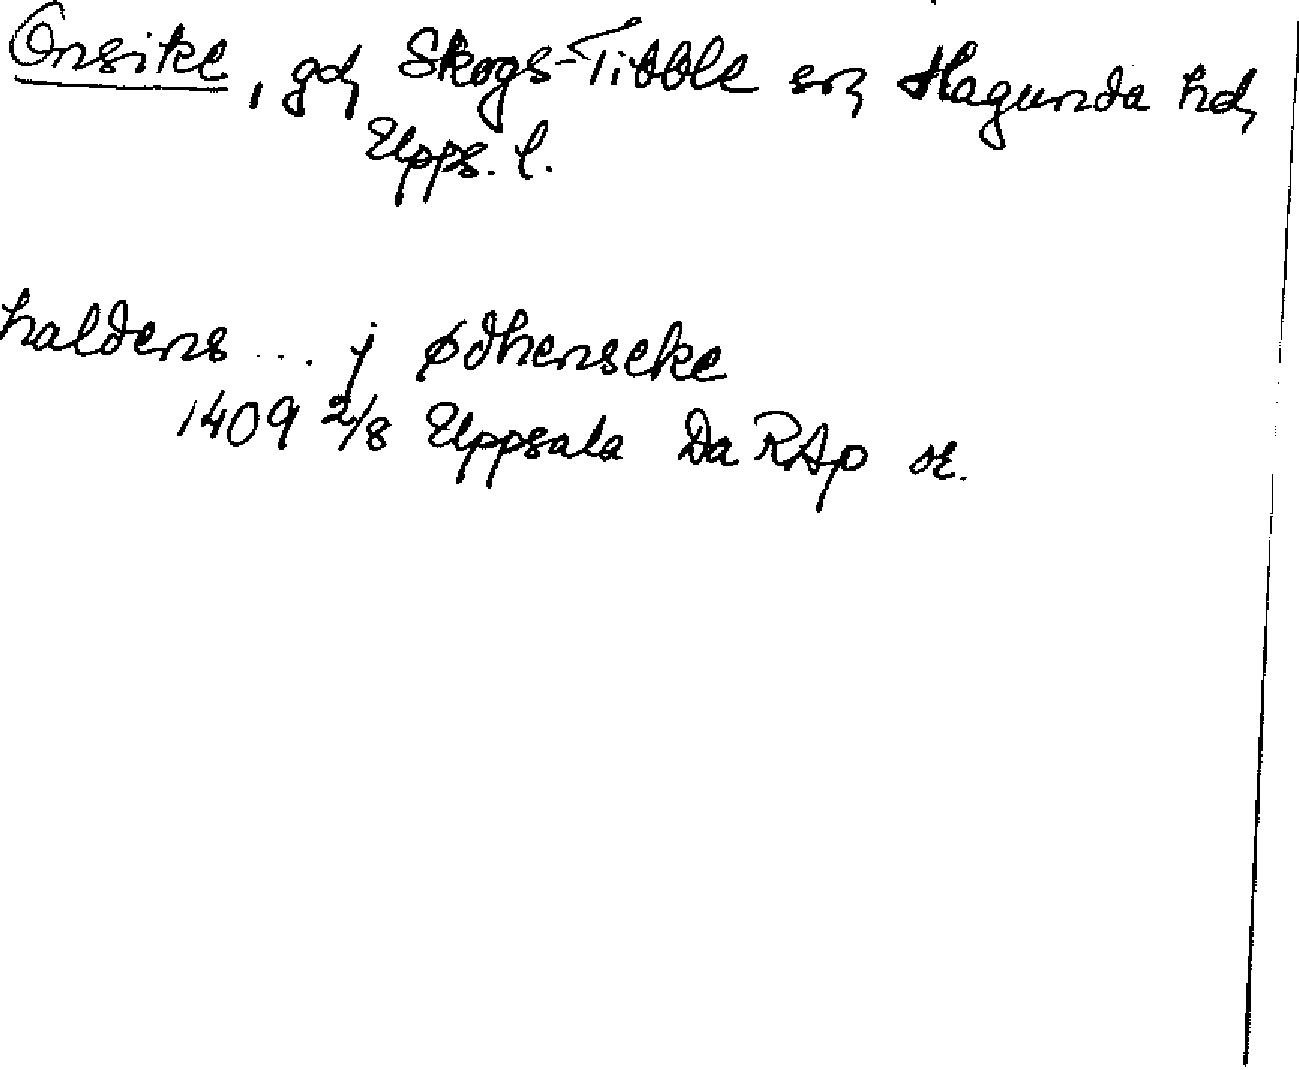 Onsike, gd, Skogs-Tibble sn, Hagunda hd,
Upps. l.
haldens ... j ødhenseke
1409 2/8 Uppsala Da RAp or.